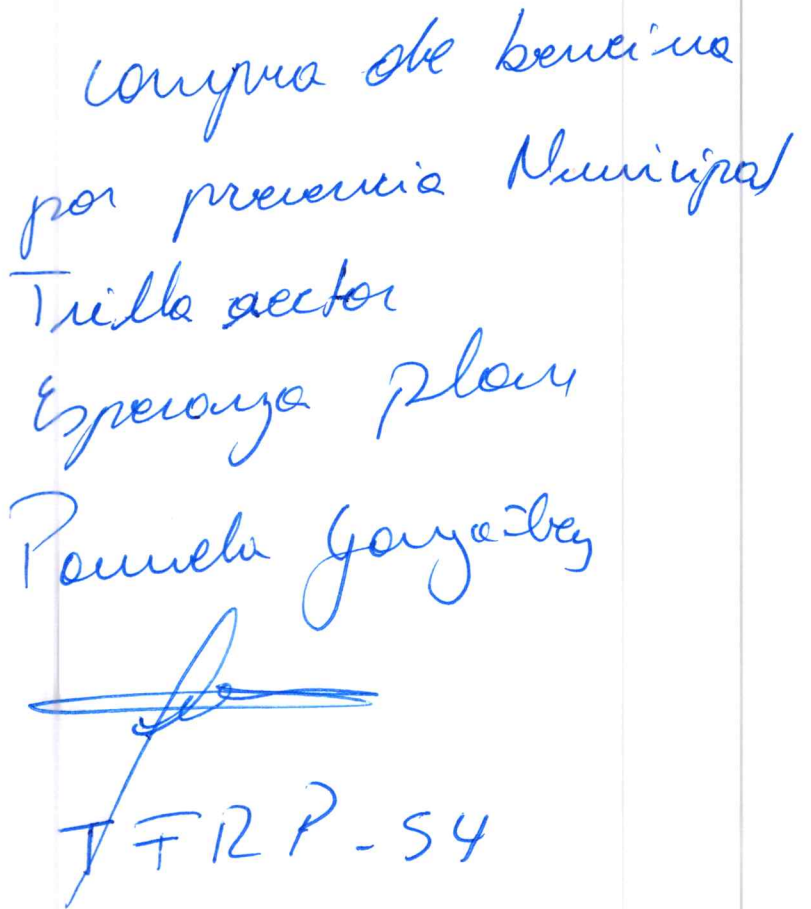 compra de bencina
por presencia Municipal
Trilla sector
Esperanza plan
Pamela González
TFRP-54